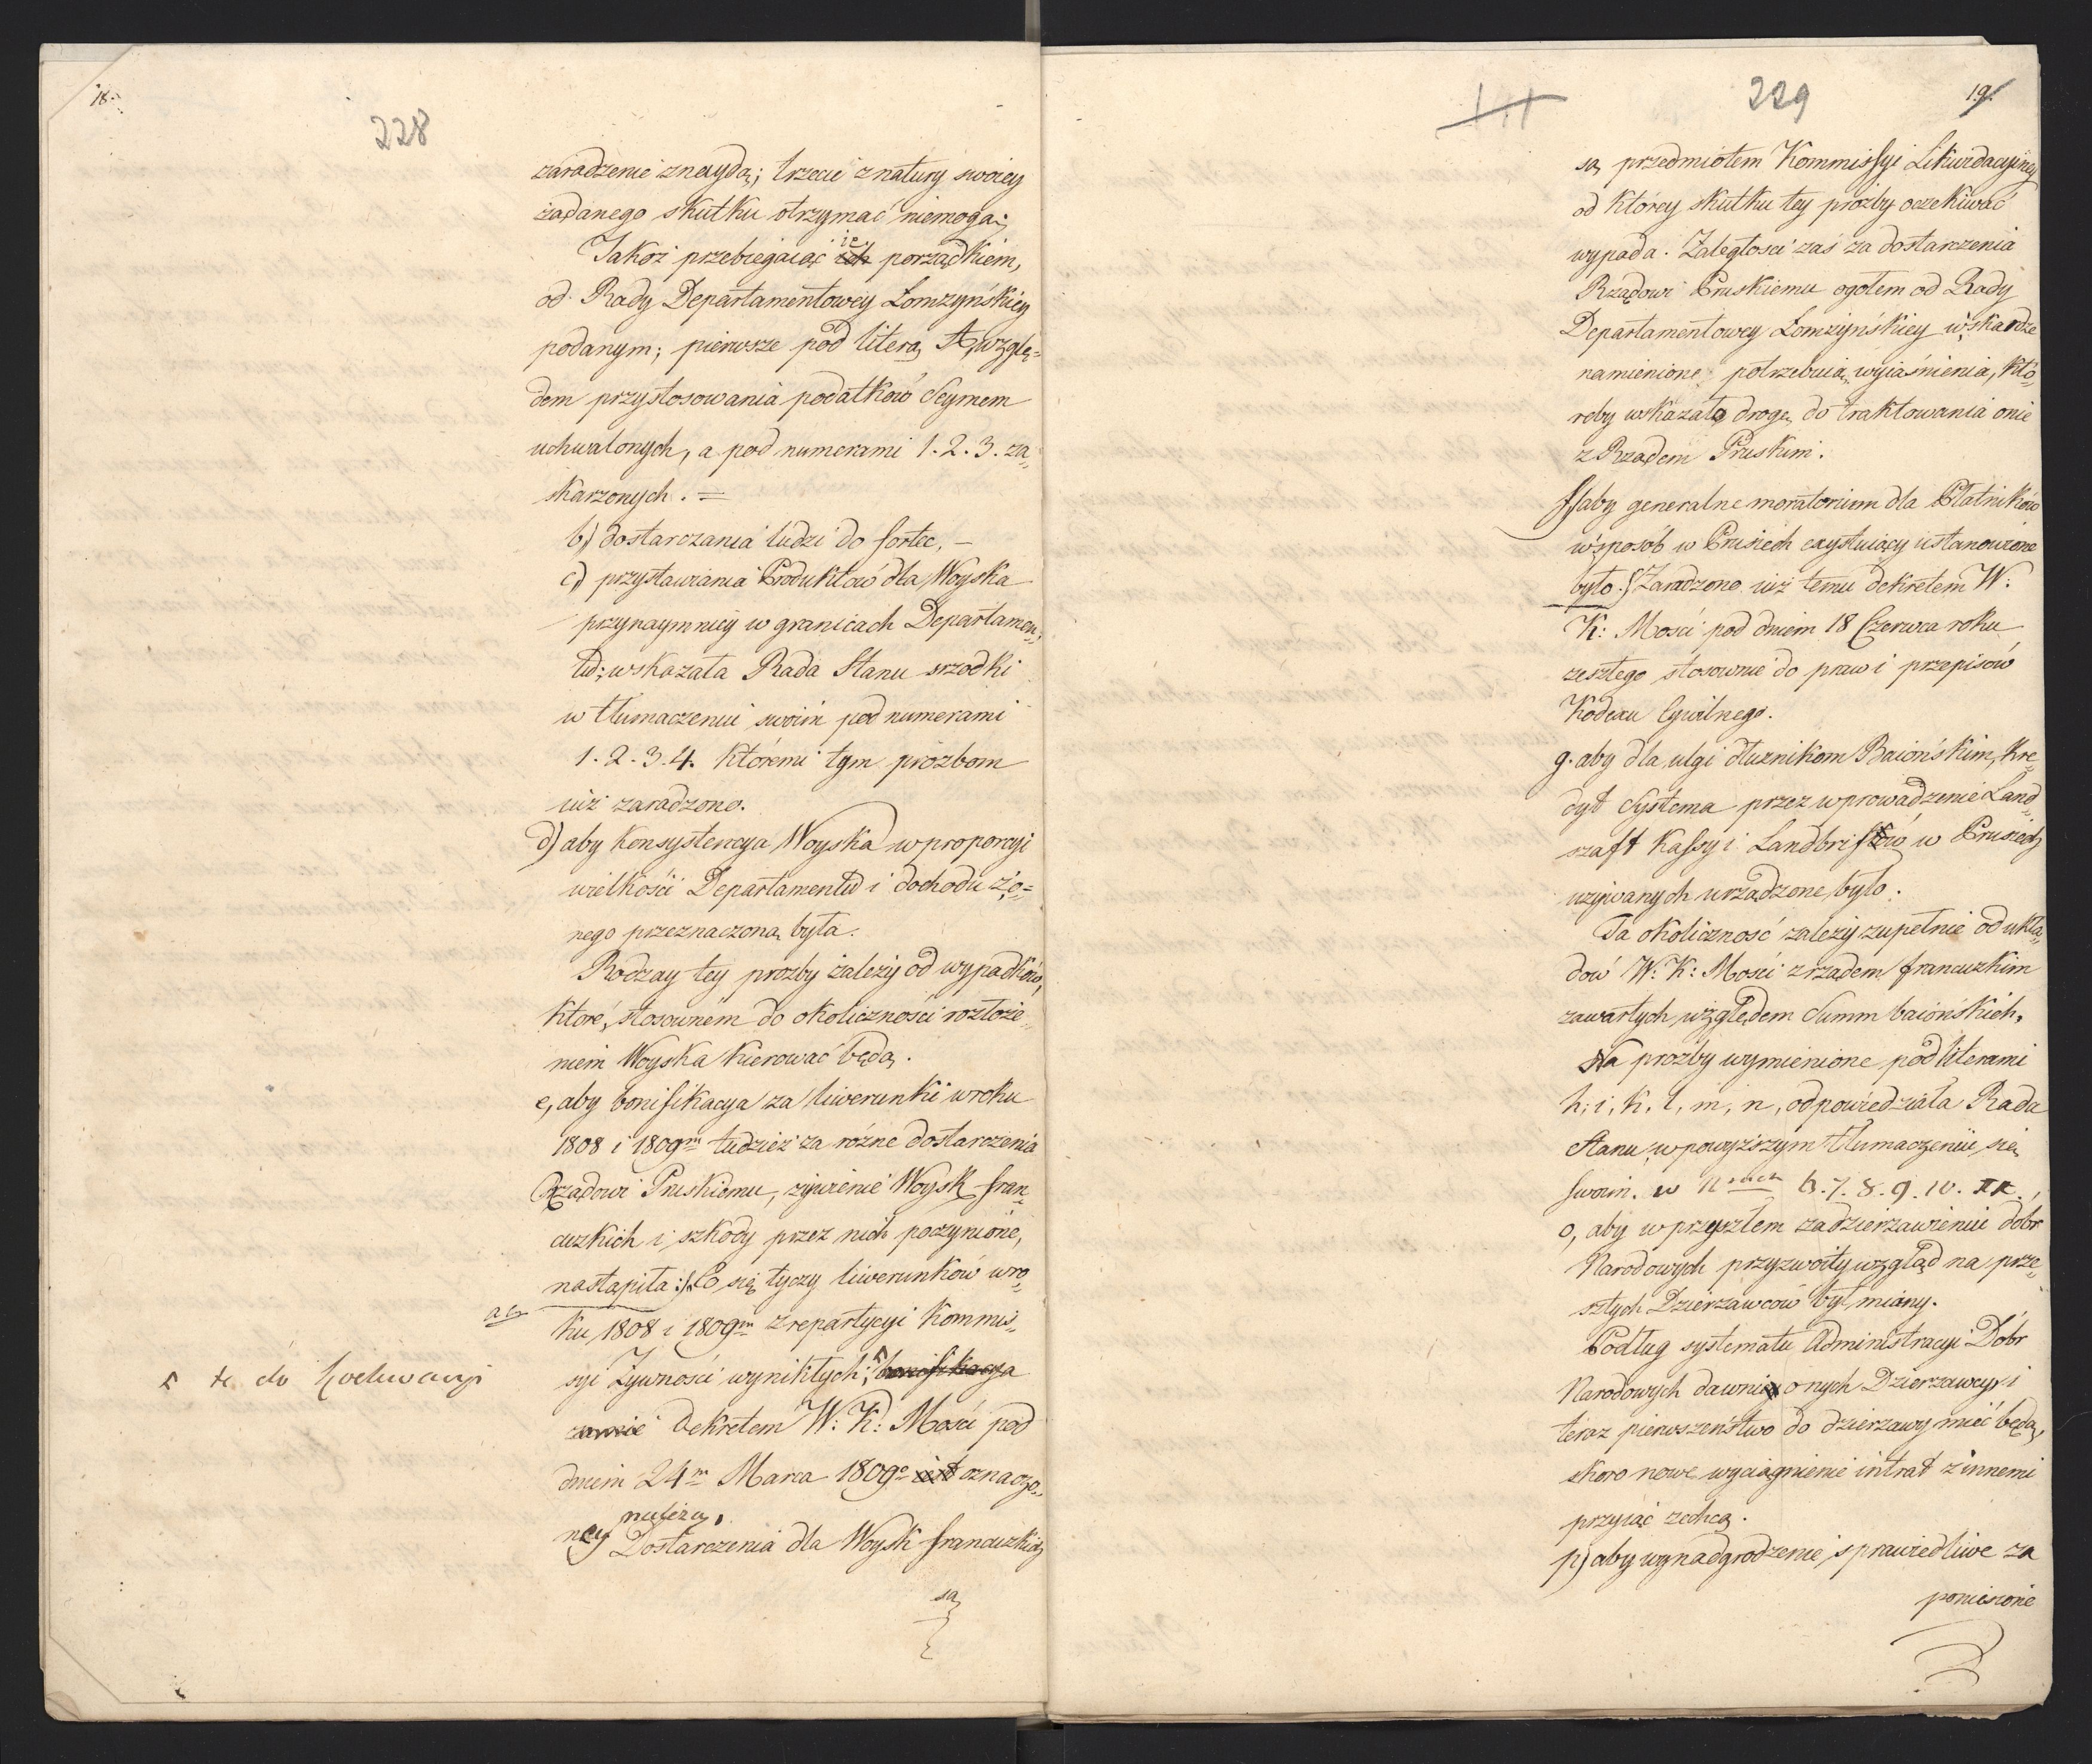 18.
228
zaradzenie znaydą; trzecie z natury swoiey
żądanego skutku otrzymać niemogą;
Jakoż przebiegaiąc ich ie porządkiem,
od Rady Departamentowey Łomżyńskiey
podanym; pierwsze pod literą A, wzglę-
dem przystosowania podatków Seymem
uchwalonych, a pod numerami 1. 2. 3. za-
skarżonych. =
b) dostarczania ludzi do fortec, –
c) przystawiania Produktów dla Woyska
przynaymniey w granicach Departamen-
tu; wskazała Rada Stanu srzodki
w tłumaczeniu swoim pod numerami
1. 2. 3. 4. któremi tym prozbom
iuż zaradzono.
d) aby konsystencya Woyska w proporcyi
wielkości Departamentu i dochodu z o-
nego przeznaczoną była.
Rodzay tey prozby zależy od wypadków,
które, stosownem do okoliczności rozłoże-
niem Woyska kierować będą.
e, aby bonifikacya za liwerunki w roku
1808 i 1809m tudzież za różne dostarczenia
Rządowi Pruskiemu, żywienie Woysk fran-
cuzkich i szkody przez nich poczynione,
nastąpiła: Co się tyczy liwerunków w ro-
ku 1808 i 1809m z repartycyi Kommis-
syi Żywności wynikłych; bonifikacya
te do
zamie Dekretem W: K: Mości pod
dniem 24m Marca 1809o iest oznaczo-
ney należą.
Dostarczenia dla Woysk francuzkich
są
229
19.
są przedmiotem Kommissyi Likwidacyiney
od którey skutku tey prożby oczekiwać
wypada. Zaległości zaś za dostarczenia
Rządowi Pruskiemu ogołem od Rady
Departamentowey Łomżyńskiey w skardze
namienione, potrzebuią wyiaśnienia, któ-
reby wskazało drogę do traktowania o nie
z Rządem Pruskim.
f) aby generalne moratorium dla Płatników
w sposób w Prusiech exystuiący ustanowione
było. Zaradzono iuż temu dekretem W:
K: Mości pod dniem 18 Czerwca roku
zeszłego stosownie do praw i przepisów
Kodexu Cywilnego.
g. aby dla ulgi dłużnikom Baiońskim, Kre-
dyt Systema przez wprowadzenie Land
szaft Kassy i Landbrifów w Prusiech
używanych urządzone było.
Ta okoliczność zależy zupełnie od ukła-
dów W: K: Mości z rządem francuzkim
zawartych względem Summ baiońskich,
Na prozby wymienione pod literami
h, i, k, l, m, n, odpowiedziała Rada
Stanu w powyższym tłumaczeniu się
swoim. w Nrach 6. 7. 8. 9. 10.
o, aby w przyszłem zadzierżawieniu dobr
Narodowych przyzwoity wzgląd na prze-
szłych Dzierżawców był miany.
Podług systematu Administracyi Dobr
Narodowych dawni onych Dzierżawcy i
teraz pierwszeństwo do dzierżawy mieć będą,
skoro nowe wyciągnienie intrat z innemi
przyiąć zechcą.
p) aby wynadgrodzenie sprawiedliwe za
poniesione